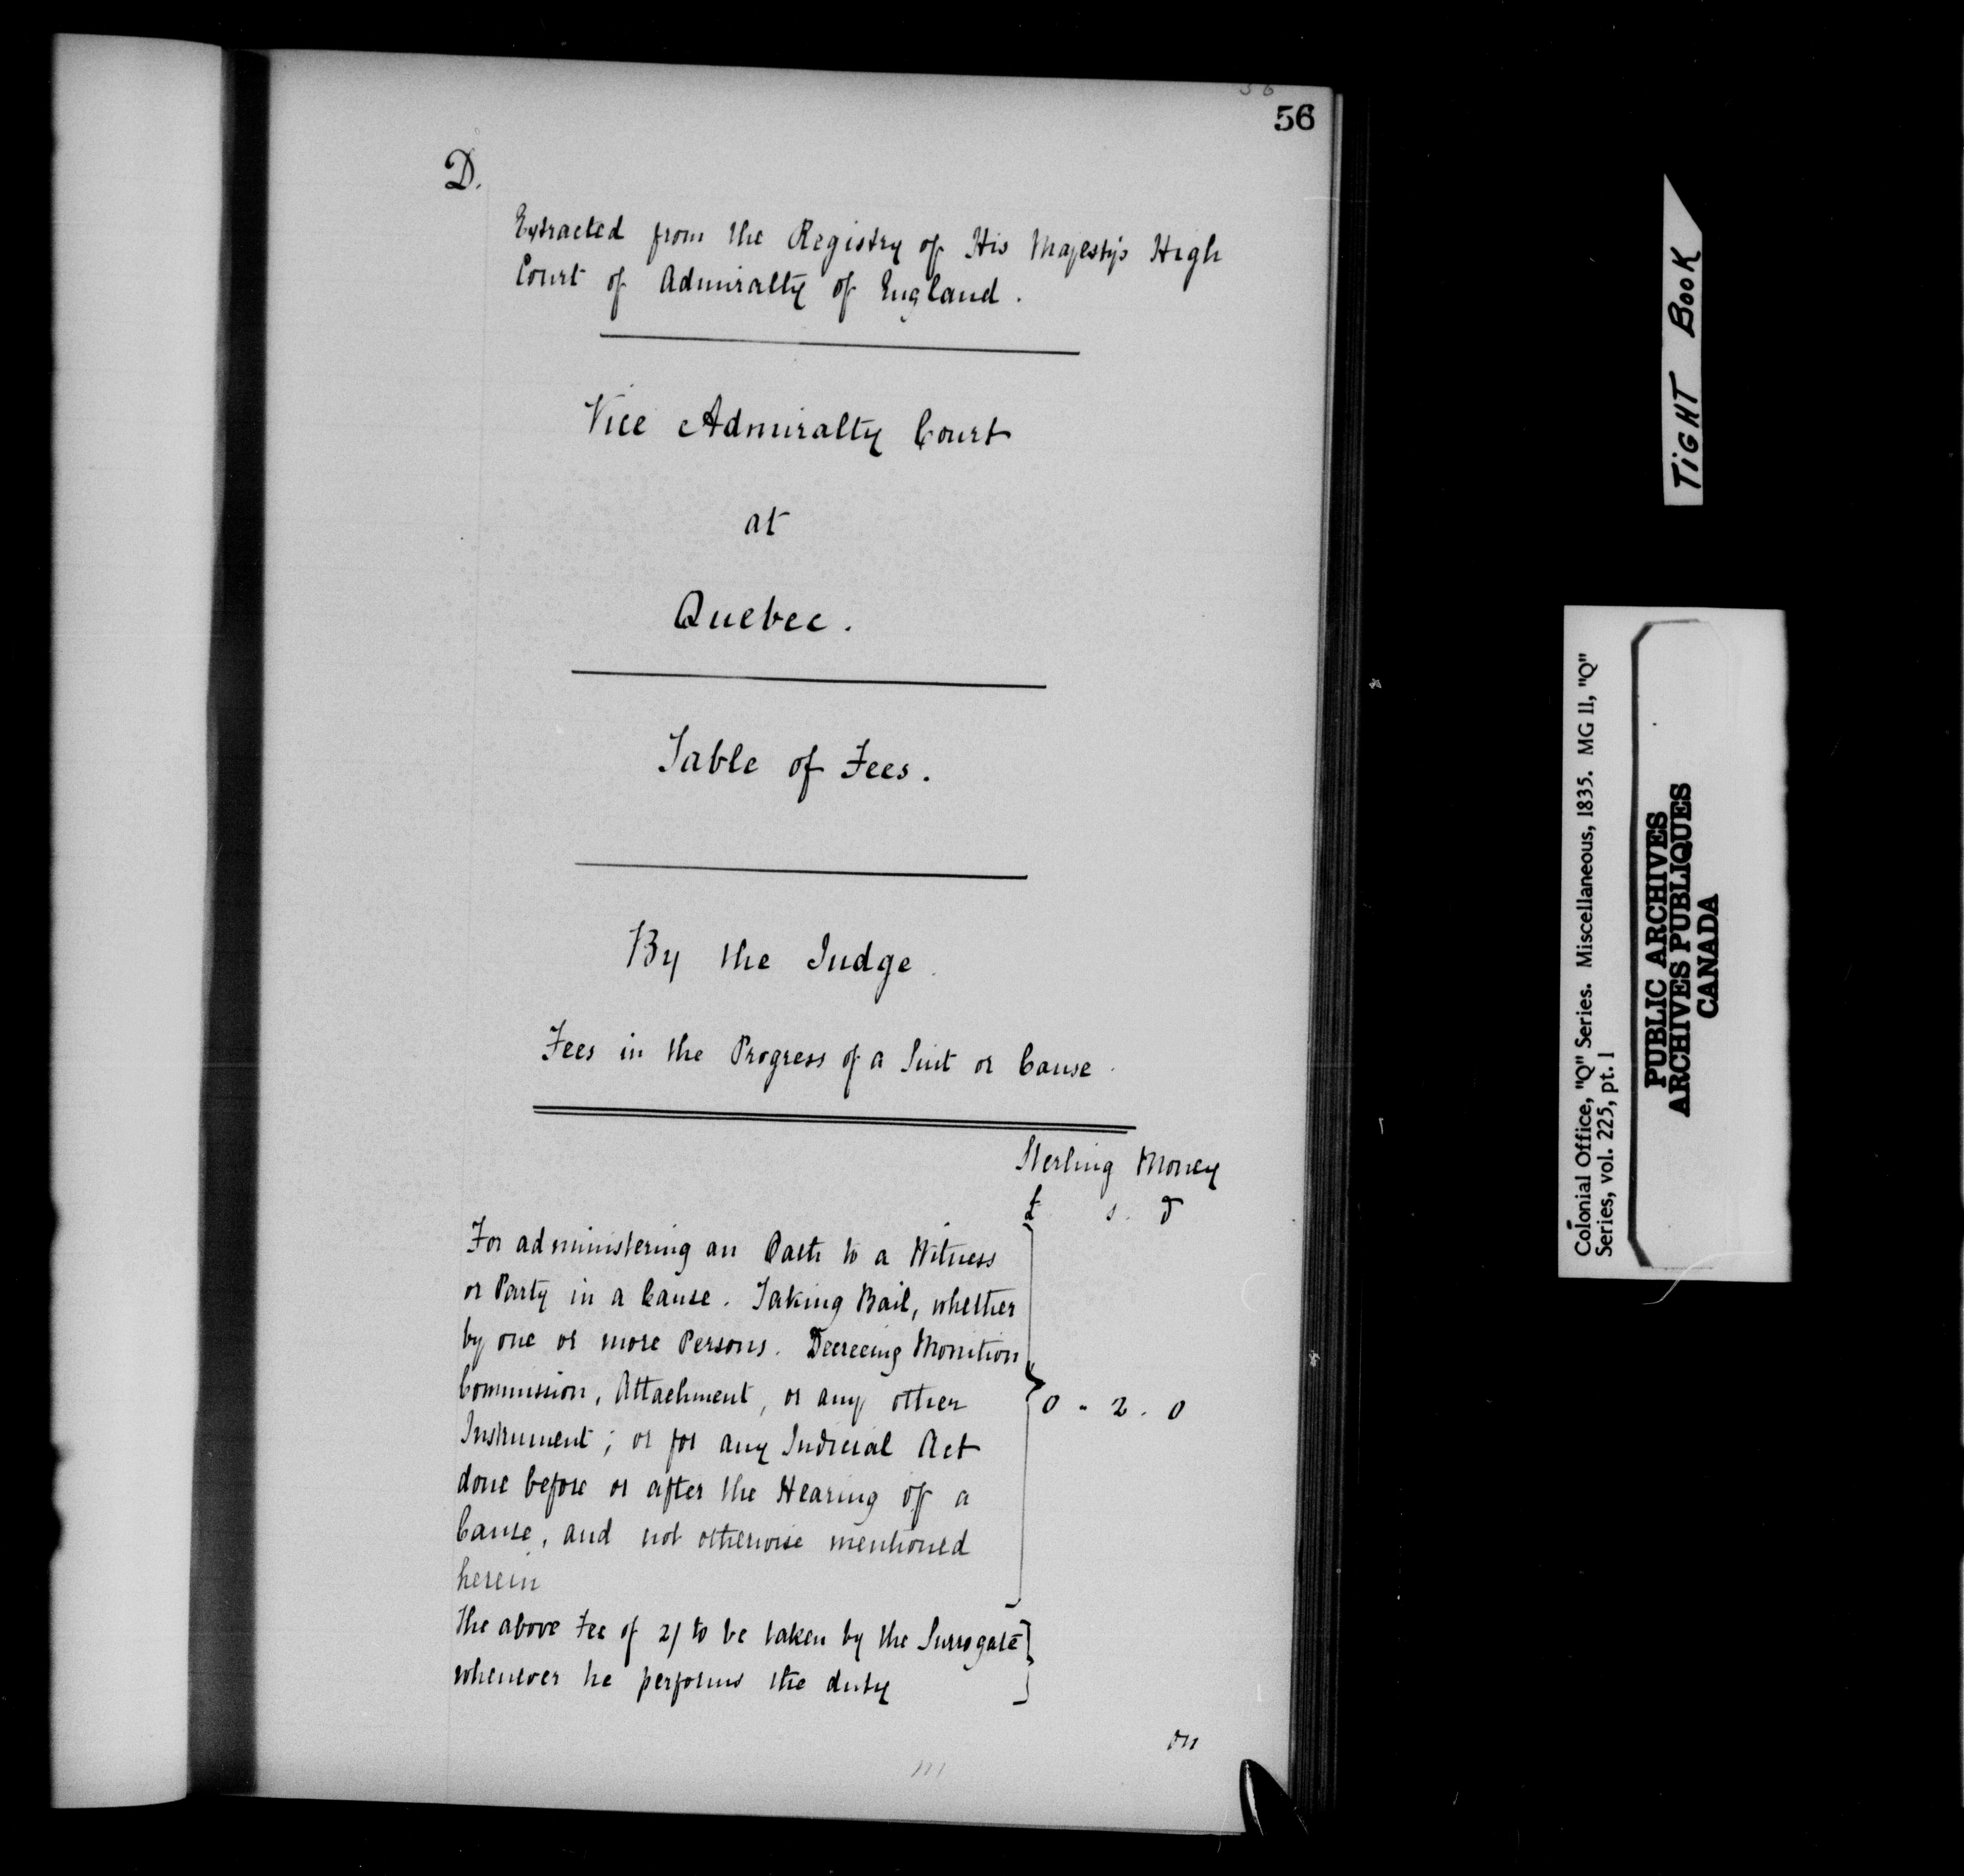 56
D.
Extracted from the Registry of His Majesty's High
Court of Admiralty of England.
Vice Admiralty Court
at
Quebec.
Table of Fees.
By the Judge.
Fees in the Progress of a Suit or Cause.
Sterling Money
£ s. d
For administering an Oath to a Witness
or Party in a Cause. Taking Bail, whether
by one or more Persons. Decreeing Monition
Commission, Attachment, or any other
0 - 2 . 0
Instrument; or for any Judicial Act
done before or after the Hearing of a
Cause, and not otherwise mentioned
herein
The above Fee of 2/ to be taken by the Surrogate
whenever he performs the duty
on
TIGHT BOOK
Colonial Office, "Q" Series. Miscellaneous, 1835. MG 11, "Q"
Series, vol. 225, pt. 1
PUBLIC ARCHIVES
ARCHIVES PUBLIQUES
CANADA